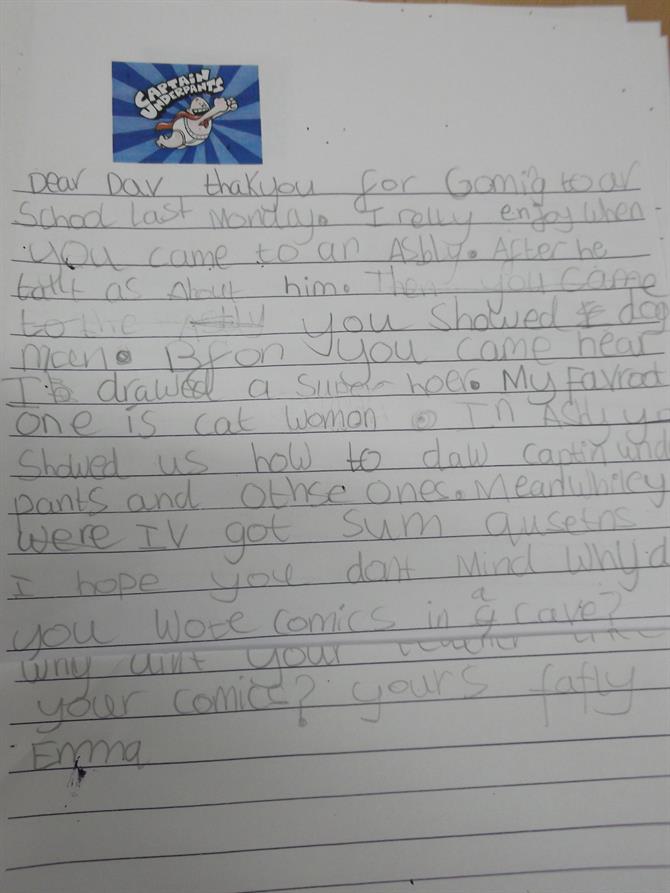 CAPTAIN
UNDERPANTS
Dear Dav thakyou for Gomig to ar
School last Monday. I relly enjoy when
you came to an Asbly. After he
talk as about him. Then you came
to the Asbly you showed dog
men. Bfon you came hear
I drawed a super hoer. My Favroot
one is cat woman In Asbly yo
showed us how to daw captin und
pants and othse ones. Meanwhiley
were IV got sum qusetns
I hope you dont Mind Why d
you wote comics in a cave?
why aint your teacher like
your comics? yours fafly
Emma